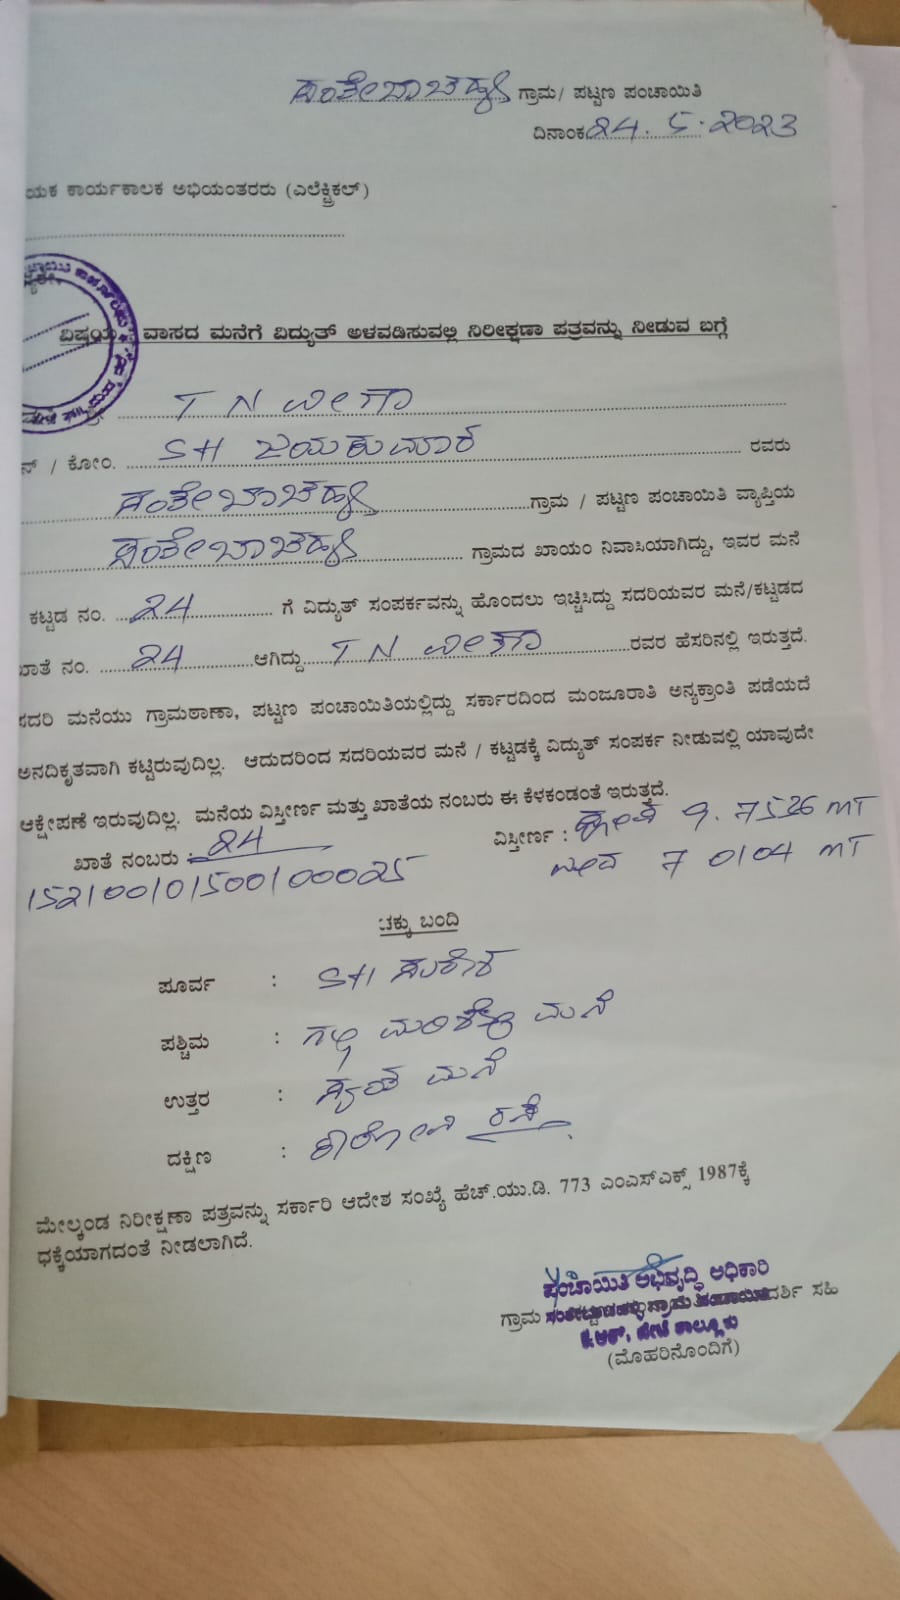 ಸಂತೇಬಾಚಹಳ್ಳಿ ಗ್ರಾಮ/ ಪಟ್ಟಣ ಪಂಚಾಯಿತಿ
ದಿನಾಂಕ 24.5.2023
ಯಕ ಕಾರ್ಯಕಾಲಕ ಅಭಿಯಂತರರು (ಎಲೆಕ್ಟ್ರಿಕಲ್)
ವಿಷಯ: ವಾಸದ ಮನೆಗೆ ವಿದ್ಯುತ್ ಅಳವಡಿಸುವಲ್ಲಿ ನಿರೀಕ್ಷಣಾ ಪತ್ರವನ್ನು ನೀಡುವ ಬಗ್ಗೆ
T N ವೀಣಾ
ನ್ / ಕೋಂ. SH ಜಯಕುಮಾರ ರವರು
ಸಂತೇಬಾಚಹಳ್ಳಿ ಗ್ರಾಮ / ಪಟ್ಟಣ ಪಂಚಾಯಿತಿ ವ್ಯಾಪ್ತಿಯ
ಸಂತೇಬಾಚಹಳ್ಳಿ ಗ್ರಾಮದ ಖಾಯಂ ನಿವಾಸಿಯಾಗಿದ್ದು, ಇವರ ಮನೆ
ಕಟ್ಟಡ ನಂ. 24 ಗೆ ವಿದ್ಯುತ್ ಸಂಪರ್ಕವನ್ನು ಹೊಂದಲು ಇಚ್ಚಿಸಿದ್ದು ಸದರಿಯವರ ಮನೆ/ಕಟ್ಟಡದ
ಖಾತೆ ನಂ. 24 ಆಗಿದ್ದು T N ವೀಣಾ ರವರ ಹೆಸರಿನಲ್ಲಿ ಇರುತ್ತದೆ.
ಸದರಿ ಮನೆಯು ಗ್ರಾಮಠಾಣಾ, ಪಟ್ಟಣ ಪಂಚಾಯಿತಿಯಲ್ಲಿದ್ದು ಸರ್ಕಾರದಿಂದ ಮಂಜೂರಾತಿ ಅನ್ಯಕ್ರಾಂತಿ ಪಡೆಯದೆ
ಅನದಿಕೃತವಾಗಿ ಕಟ್ಟಿರುವುದಿಲ್ಲ. ಆದುದರಿಂದ ಸದರಿಯವರ ಮನೆ / ಕಟ್ಟಡಕ್ಕೆ ವಿದ್ಯುತ್ ಸಂಪರ್ಕ ನೀಡುವಲ್ಲಿ ಯಾವುದೇ
ಆಕ್ಷೇಪಣೆ ಇರುವುದಿಲ್ಲ. ಮನೆಯ ವಿಸ್ತೀರ್ಣ ಮತ್ತು ಖಾತೆಯ ನಂಬರು ಈ ಕೆಳಕಂಡಂತೆ ಇರುತ್ತದೆ.
ಖಾತೆ ನಂಬರು : 24 ವಿಸ್ತೀರ್ಣ : 9.7536 MT
152100101500100025 7 0104 MT
ಚಕ್ಕು ಬಂದಿ
ಪೂರ್ವ : SH ಸುರೇಶ
ಪಶ್ಚಿಮ : ಗಲ್ಲಿ ಮನೆ
ಉತ್ತರ : ಸ್ವಂತ ಮನೆ
ದಕ್ಷಿಣ : ರಸ್ತೆ
ಮೇಲ್ಕಂಡ ನಿರೀಕ್ಷಣಾ ಪತ್ರವನ್ನು ಸರ್ಕಾರಿ ಆದೇಶ ಸಂಖ್ಯೆ ಹೆಚ್.ಯು.ಡಿ. 773 ಎಂಎಸ್‌ಎಕ್ಸ್ 1987ಕ್ಕೆ
ಧಕ್ಕೆಯಾಗದಂತೆ ನೀಡಲಾಗಿದೆ.
ಪಂಚಾಯಿತಿ ಅಭಿವೃದ್ಧಿ ಅಧಿಕಾರಿ
ಗ್ರಾಮ ದರ್ಶಿ ಸಹಿ
ಕೆ.ಆರ್. ಪೇಟೆ ತಾಲ್ಲೂಕು
(ಮೊಹರಿನೊಂದಿಗೆ)